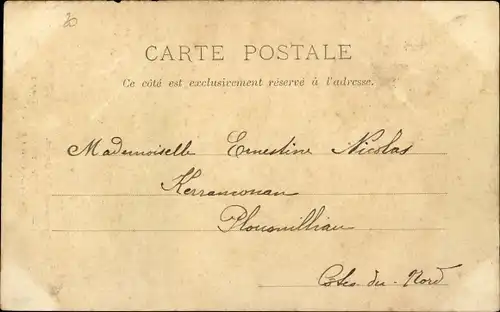 CARTE POSTALE
Ce côté est exclusivement réservé à l'adresse.
Mademoiselle Ernestine Nicolas
Kerramouan
Ploumilliau
Côtes-du-Nord